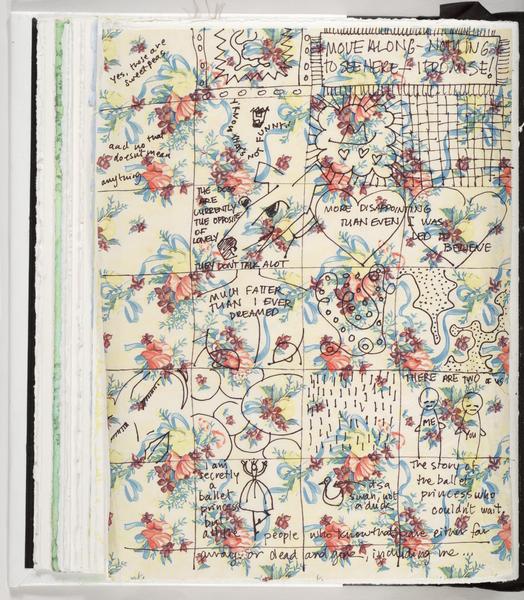 Yes, these are
sweet peas
MOVE ALONG - NOTHING
TO SEE HERE - I PROMISE!
and no that
doesn't mean
anything
NOT FUNNY.
THE DOGS
ARE
CURRENTLY
THE OPPOSITE
OF
LONELY
THEY DON'T TALK A LOT
MORE DISAPPOINTING
THAN EVEN I WAS
LED TO
BELIEVE
MUCH FATTER
THAN I EVER
DREAMED
THERE ARE TWO OF US
ME
YOU
I am
secretly
a
ballet
princess
but
all the people who know that are either far
away or dead and gone, including me...
its a
swan, not
a duck
The story of
the ballet
princess who
couldn't wait